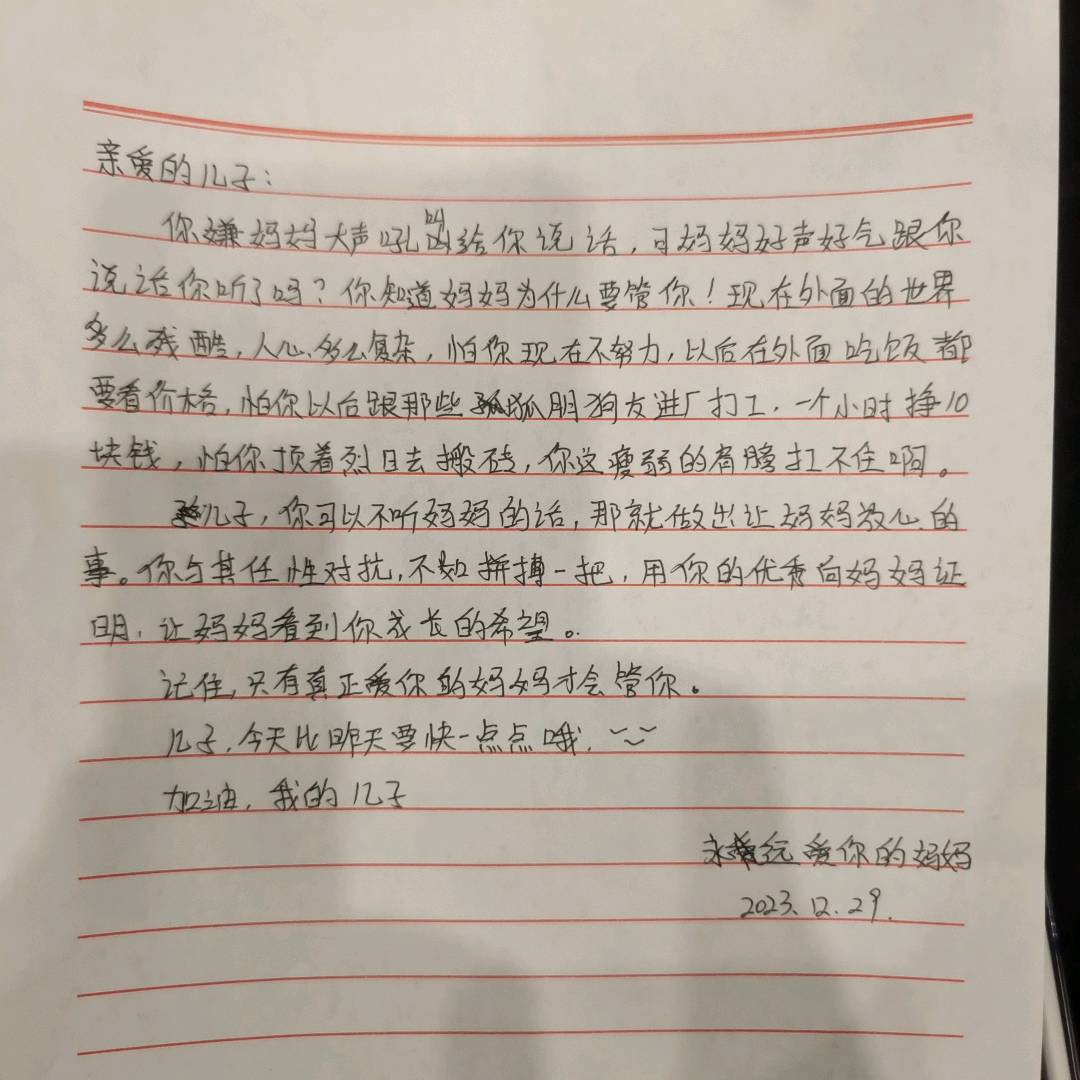 亲爱的儿子：
你嫌妈妈大声吼叫给你说话，可妈妈好声好气跟你
说话你听了吗？你知道妈妈为什么要管你！现在外面的世界
多么残酷，人心多么复杂，怕你现在不努力，以后在外面吃饭都
要看价格，怕你以后跟那些狐朋狗友进厂打工，一个小时挣10
块钱，怕你顶着烈日去搬砖，你这瘦弱的肩膀扛不住啊。
儿子，你可以不听妈妈的话，那就做出让妈妈放心的
事。你与其任性对抗，不如拼搏一把，用你的优秀向妈妈证
明，让妈妈看到你成长的希望。
记住，只有真正爱你的妈妈才会管你。
儿子，今天比昨天要快一点点哦，
加油，我的儿子
永远爱你的妈妈
2023.12.29.